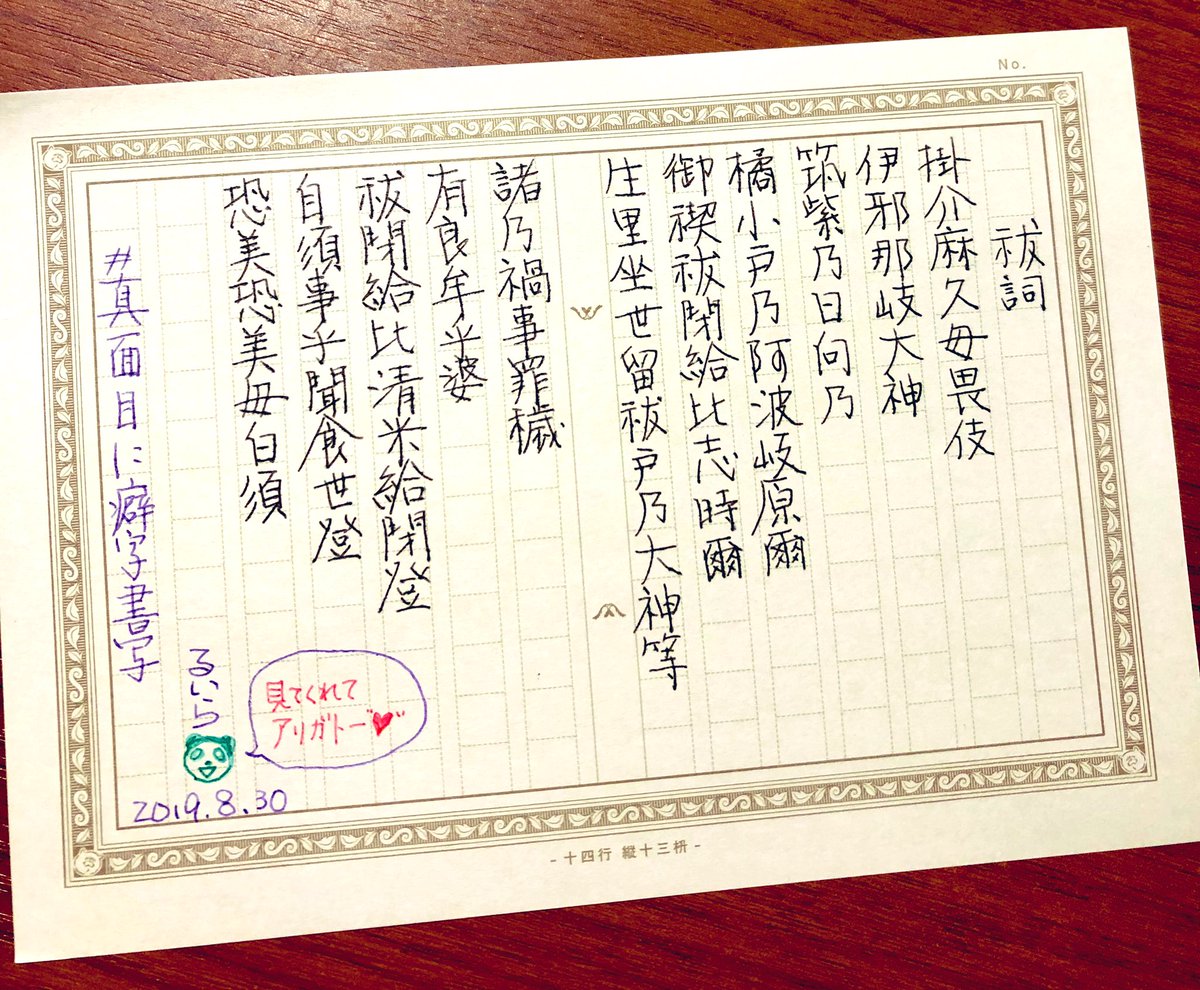 No.
祓詞
掛介麻久毋畏伎
伊邪那岐大神
筑紫乃日向乃
橘小戸乃阿波岐原爾
御禊祓閉給比志時爾
生里坐世留祓戸乃大神等
諸乃禍事罪穢
有良牟乎婆
祓閉給比清米給閉登
白須事乎聞食世登
恐美恐美毋白須
#真面目に癖字書写
るいら
見てくれて
アリガトー♥
2019.8.30
- 十四行 縦十三枡 -